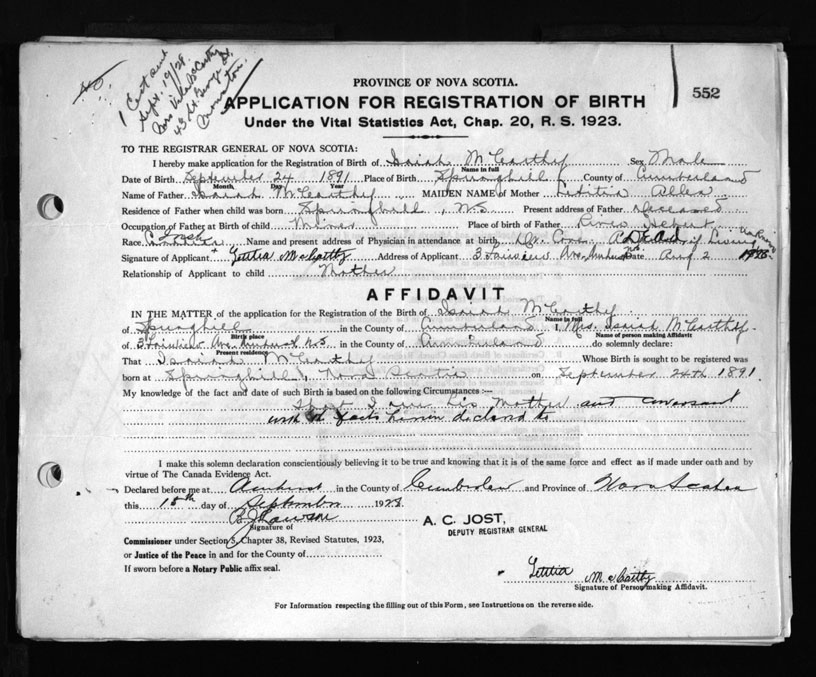 1 Cert sent
Sept. 19/28
Mrs McCarthy
43 St George St.
Moncton
PROVINCE OF NOVA SCOTIA.
552
APPLICATION FOR REGISTRATION OF BIRTH
Under the Vital Statistics Act, Chap. 20, R. S. 1923.
TO THE REGISTRAR GENERAL OF NOVA SCOTIA:
I hereby make application for the Registration of Birth of Isaiah McCarthy Sex Male
Name in full
Date of Birth September 24 1891 Place of Birth Springhill County of Cumberland
Month Day Year
Name of Father Isaiah McCarthy MAIDEN NAME of Mother Letitia Allen
Residence of Father when child was born Springhill, N.S Present address of Father deceased
Occupation of Father at Birth of child Miner Place of birth of Father River Hebert
Race Name and present address of Physician in attendance at birth Dr. Cove Dead
Signature of Applicant Letitia McCarthy Address of Applicant 3 Fairview Ave. Amherst Date Aug 2
Relationship of Applicant to child Mother
AFFIDAVIT
IN THE MATTER of the application for the Registration of the Birth of Isaiah McCarthy
Name in full
of Springhill in the County of Cumberland I, Mrs. Isaiah McCarthy
Birth place Name of person making Affidavit
of 3 Fairview Ave. Amherst N.S in the County of Cumberland do solemnly declare:
Present residence
That Isaiah McCarthy Whose Birth is sought to be registered was
born at Springhill, Nova Scotia on September 24th 1891
My knowledge of the fact and date of such Birth is based on the following Circumstances:—
That I am his Mother and conversant
with facts herein declared to
I make this solemn declaration conscientiously believing it to be true and knowing that it is of the same force and effect as if made under oath and by
virtue of The Canada Evidence Act.
Declared before me at Amherst in the County of Cumberland and Province of Nova Scotia
this 18th day of September 1928
Signature of
A. C. JOST,
DEPUTY REGISTRAR GENERAL
Commissioner under Section 5, Chapter 38, Revised Statutes, 1923,
or Justice of the Peace in and for the County of
If sworn before a Notary Public affix seal.
Letitia McCarthy
Signature of Person making Affidavit.
For Information respecting the filling out of this Form, see Instructions on the reverse side.